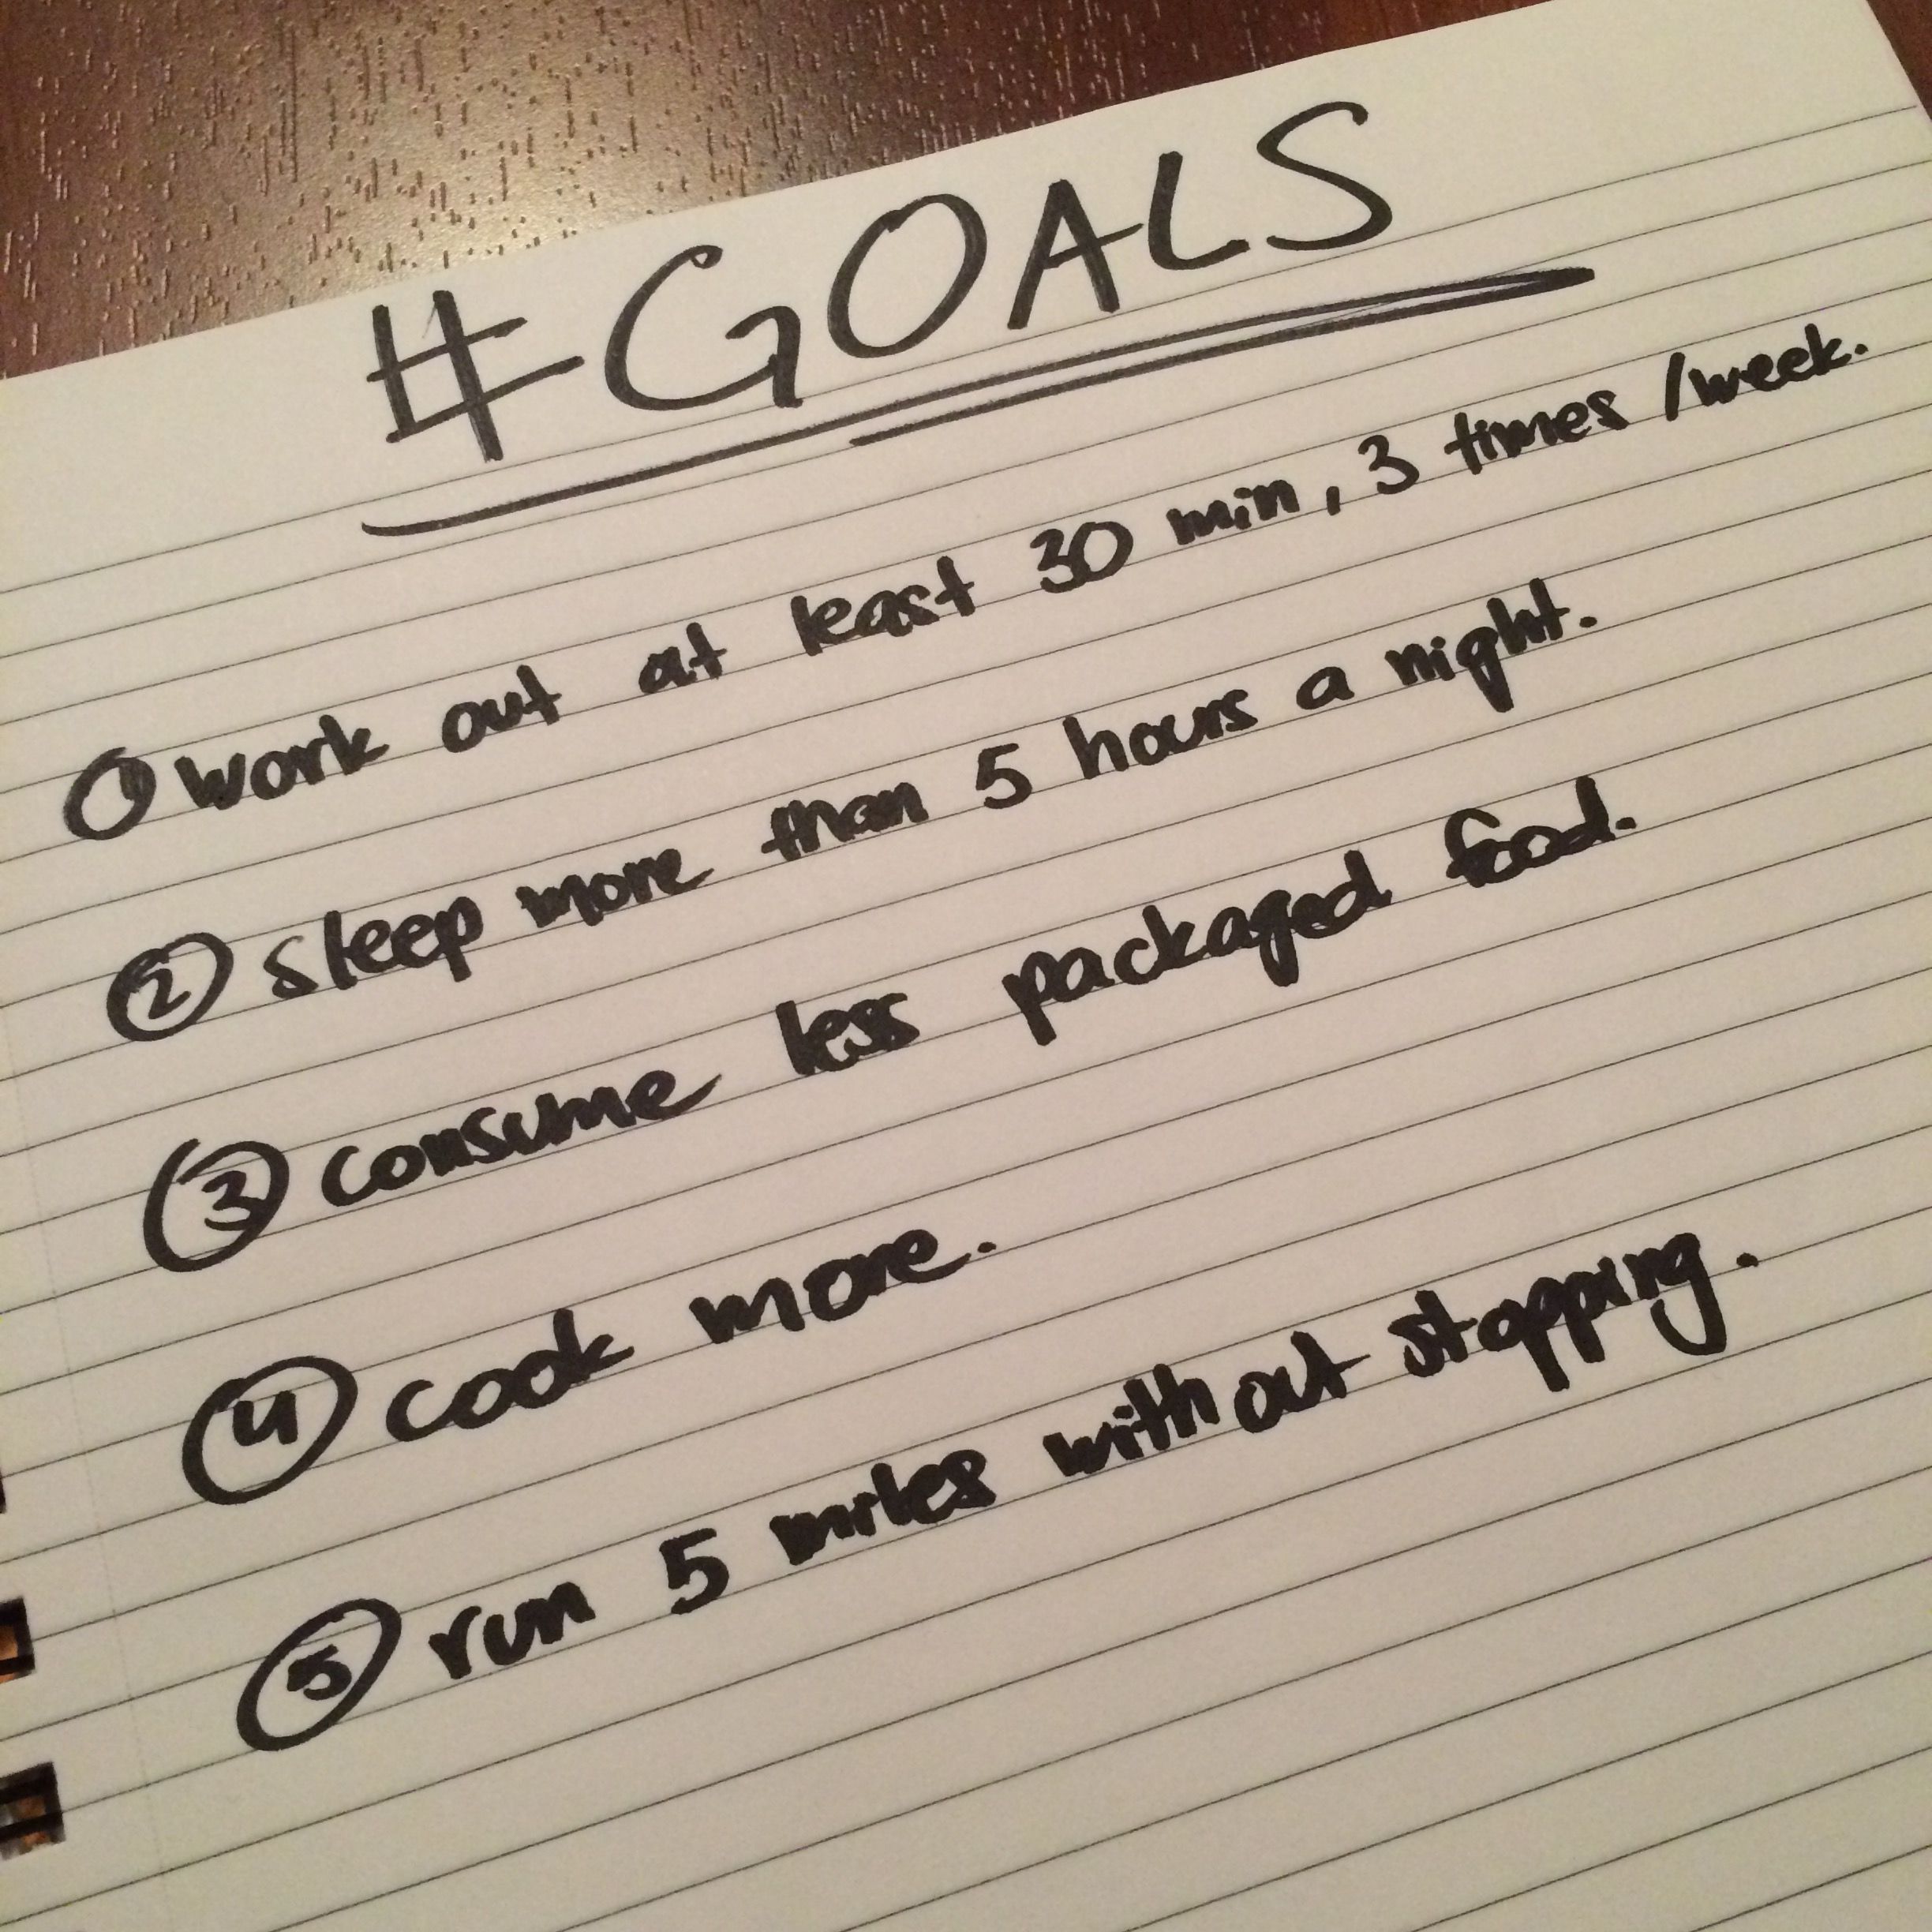 #GOALS
① work out at least 30 min, 3 times /week.
② sleep more than 5 hours a night.
③ consume less packaged food.
④ cook more.
⑤ run 5 miles without stopping.